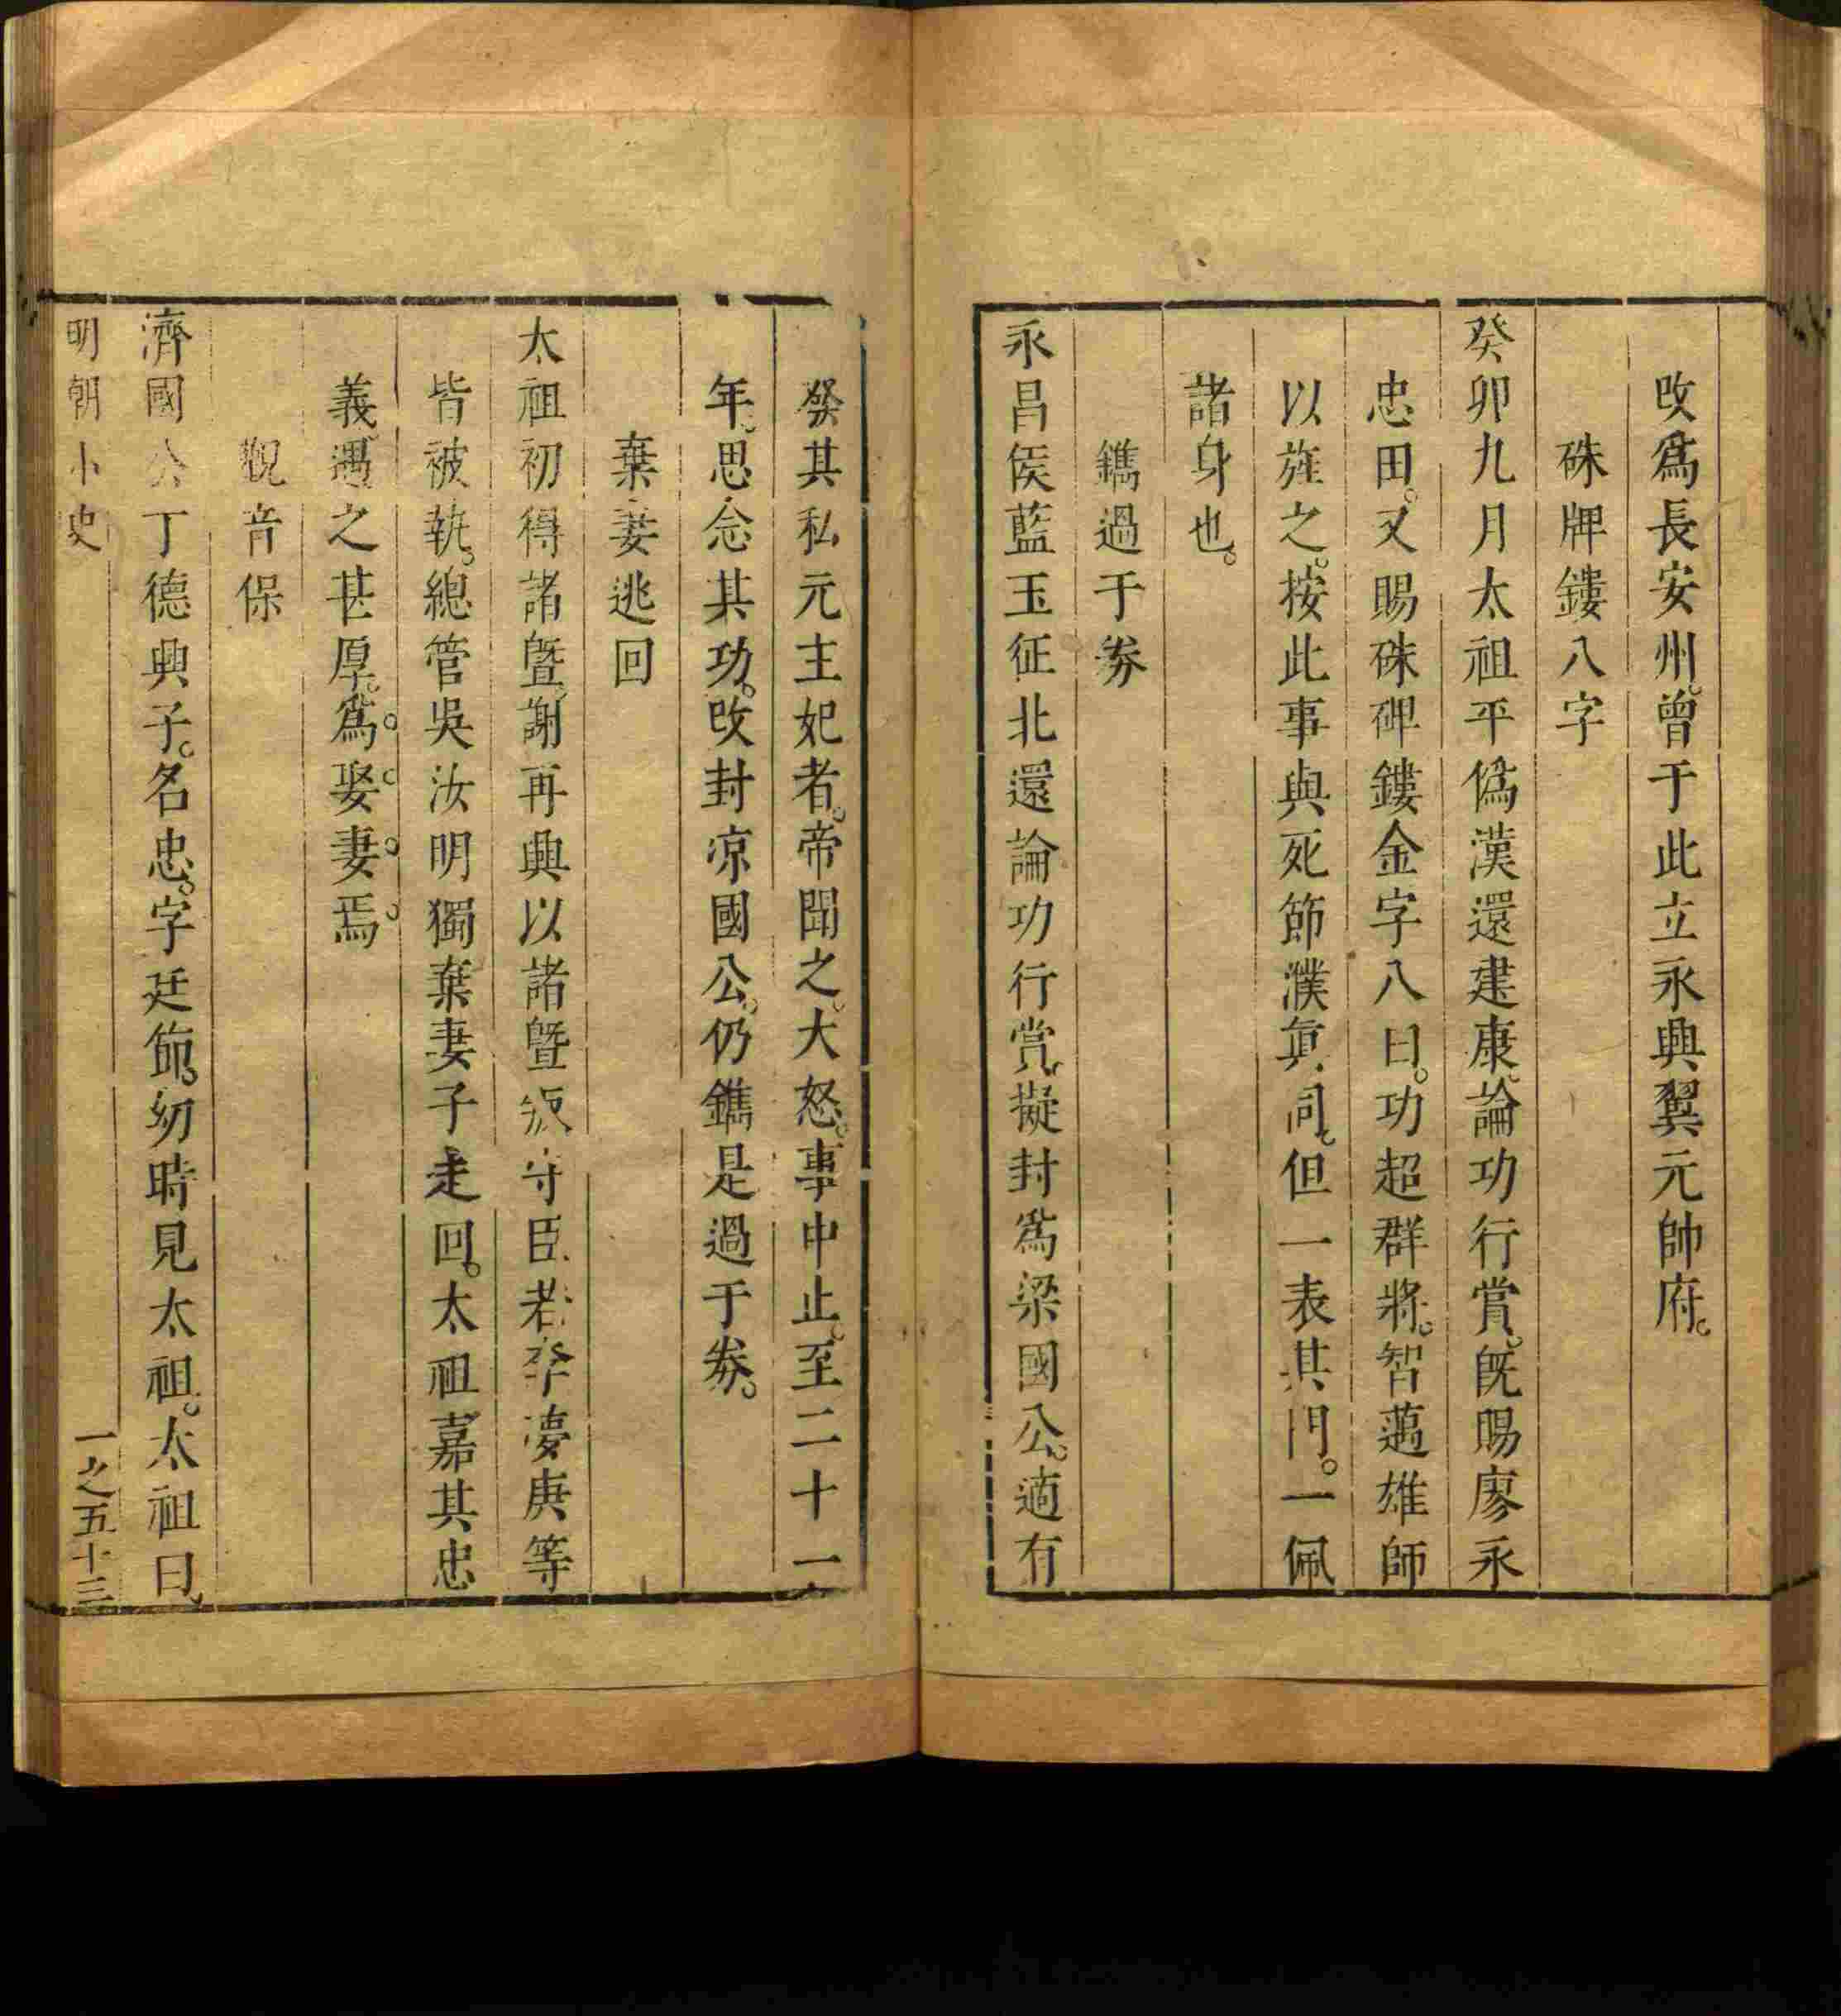 改爲長安州曾于此立永興翼元帥府
硃牌鏤八字
癸卯九月太祖平僞漢還建康論功行賞旣賜廖永
忠田又賜硃牌鏤金字八曰功超群將智邁雄師
以旌之按此事與死節濮眞同但一表其門一佩
諸身也
鐫過于券
永昌侯藍玉征北還論功行賞擬封爲梁國公適有
發其私元主妃者帝聞之大怒事中止至二十一
年思念其功改封凉國公仍鐫是過于券
棄妻逃回
太祖初得諸曁謝再興以諸曁叛守臣李夢庚等
皆被執總管吳汝明獨棄妻子走回太祖嘉其忠
義遇之甚厚爲娶妻焉
觀音保
濟國公丁德興子名忠字廷節幼時見太祖太祖曰
明朝小史
一之五十三